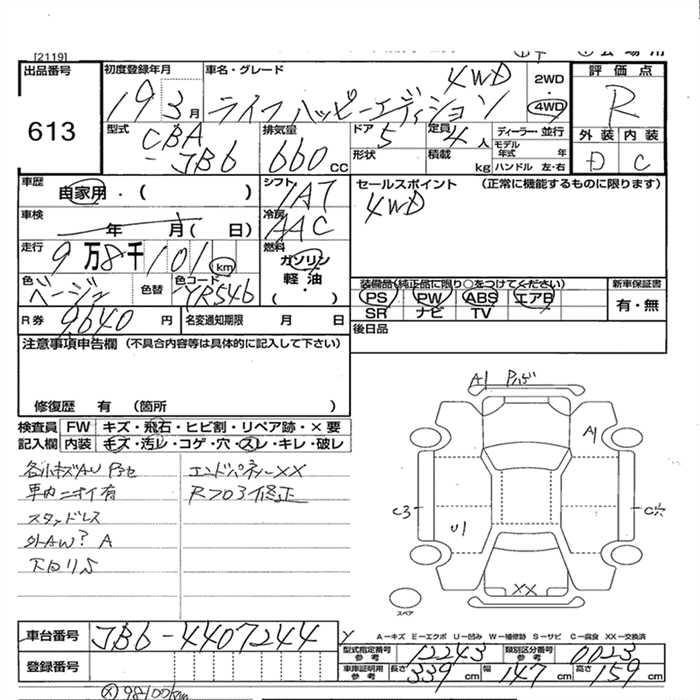 [2119]
出品番号
613
初度登録年月
19 3月
車名・グレード
4WD
ライフ ハッピーエディション
2WD
・
4WD
評価点
R
外装 内装
D C
型式
CBA
-JB6
排気量
660cc
ドア
5
形状
定員
4人
積載
kg
ディーラー・並行
モデル
年式 年
ハンドル 左・右
車歴
自家用・( )
シフト
1AT
セールスポイント (正常に機能するものに限ります)
4WD
車検
年 月( 日)
冷房
AAC
走行
9万8千101km
燃料
ガソリン
軽油・
( )
色
ベージュ
色替
色コード
YR546
装備品(純正品に限り○をつけてください)
PS PW ABS エアB
SR ナビ TV
新車保証書
有・無
R券 9640円
名変通知期限 月 日
後日品
注意事項申告欄(不具合内容等は具体的に記入して下さい)
修復歴 有 (箇所 )
検査員 FW キズ・飛石・ヒビ割・リペア跡・×要
記入欄 内装 キズ・汚レ・コゲ・穴・スレ・キレ・破レ
各小キズAU
エンドパネルXX
車内ニオイ有
修正
スタッドレス
外AW? A
下回りS
A1
A1
C3
U1
XX
スペア
A-キズ E-エクボ U-凹み W-補修跡 S-サビ C-腐食 XX-交換済
車台番号 JB6-4407244
登録番号
型式指定番号
参考
12243
類別区分番号
参考
0023
車庫証明用
参考
長さ 339cm 幅 147cm 高さ 159cm
98100km